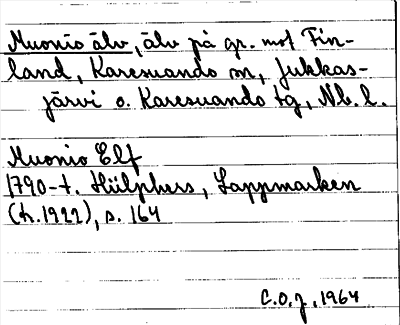 Muonio älv, älv på gr. mot Fin-
land, Karesuando sn, Jukkas-
järvi o. Karesuando tg, Nb. l.
Muonio Elf
1790-t. Hülphers, Lappmarken
(tr. 1922), s. 164
C.O.J., 1964